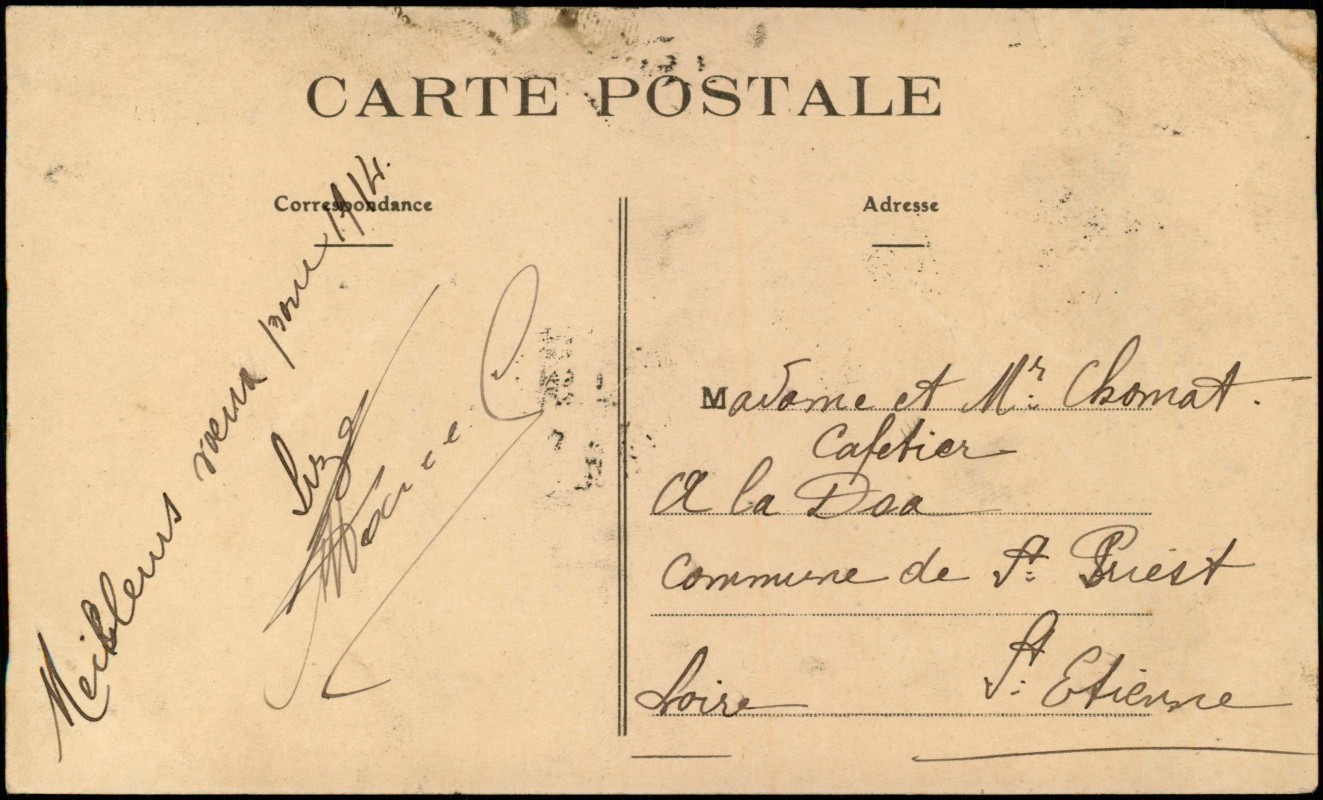 CARTE POSTALE
Correspondance
Adresse
Meilleurs vœux pour 1914.
Madame et Mr Chomat.
Cafetier
A la Doa
Commune de St Priest
Loire St Etienne